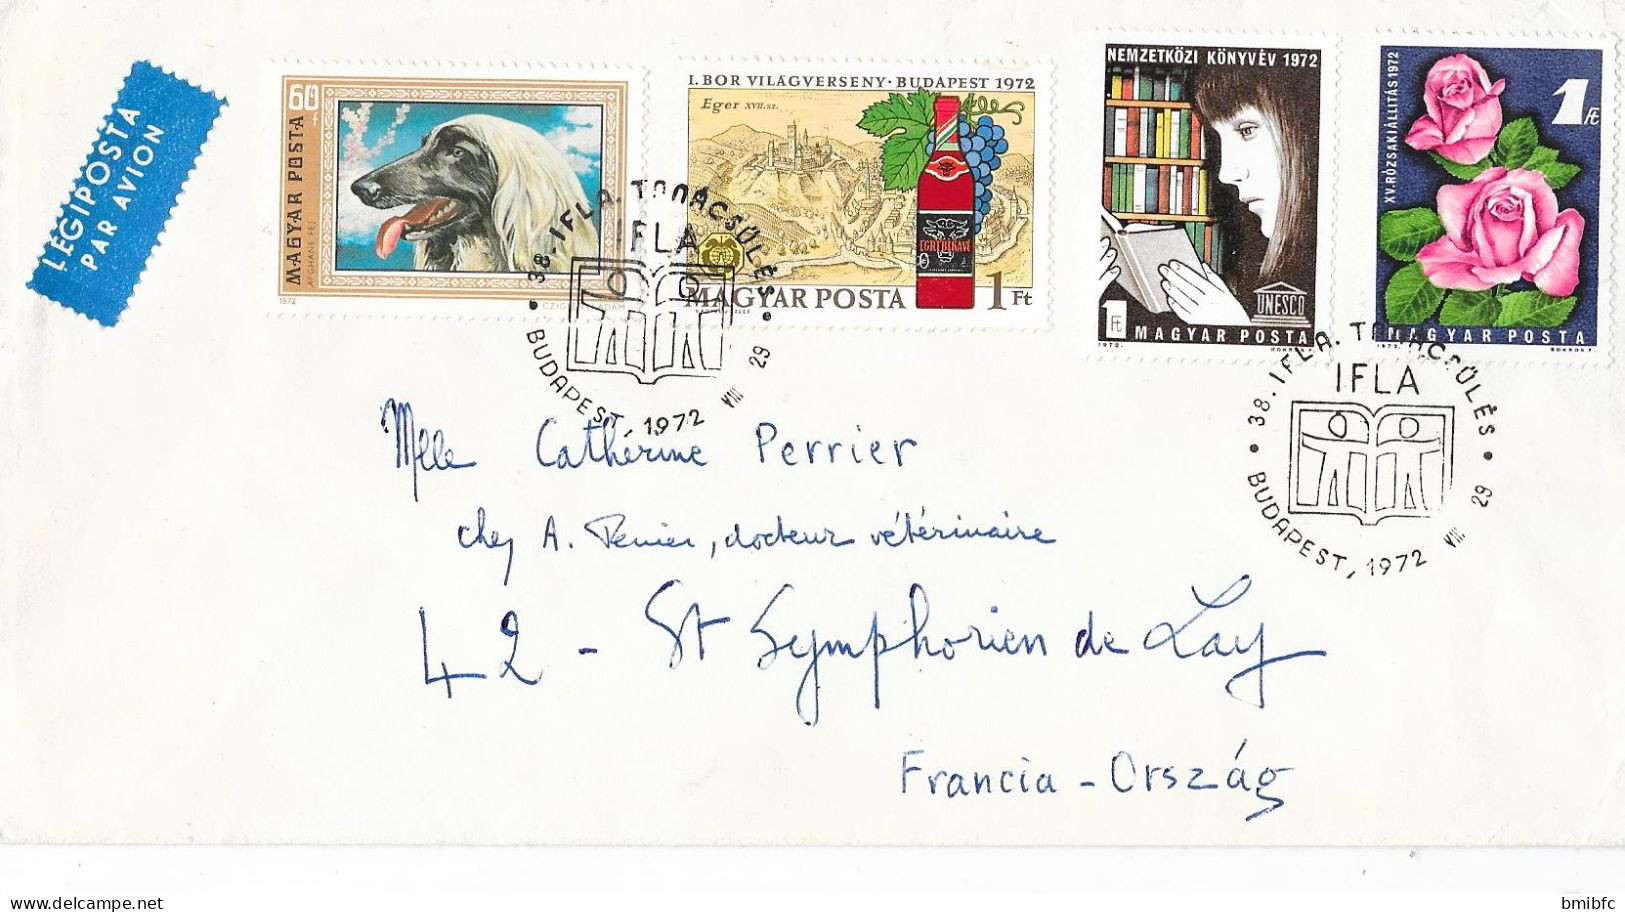 LÉGIPOSTA
PAR AVION
60f
MAGYAR POSTA
AFGHÁN FEJ
1972
I. BOR VILÁGVERSENY · BUDAPEST 1972
Eger XVII. sz.
EGRI BIKAVÉR
MAGYAR POSTA 1 Ft
NEMZETKÖZI KÖNYVÉV 1972
UNESCO
1 Ft MAGYAR POSTA
1972.
1 Ft
XV. RÓZSAKIÁLLITÁS 1972
MAGYAR POSTA
1972.
38. IFLA. TANÁCSÜLÉS
IFLA
BUDAPEST, 1972 VIII 29
38. IFLA. TANÁCSÜLÉS
IFLA
BUDAPEST, 1972 VIII 29
Mlle Cathérine Perrier
chez A. Perrier, docteur vétérinaire
42 - St Symphorien de Lay
Francia - Ország
bmibfc